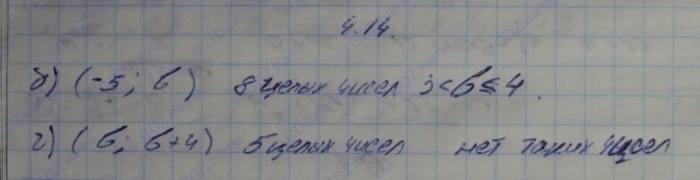 4.14.
б) (-5; b) 8 целых чисел 3<b≤4.
г) (b; b+4) 5 целых чисел нет таких чисел